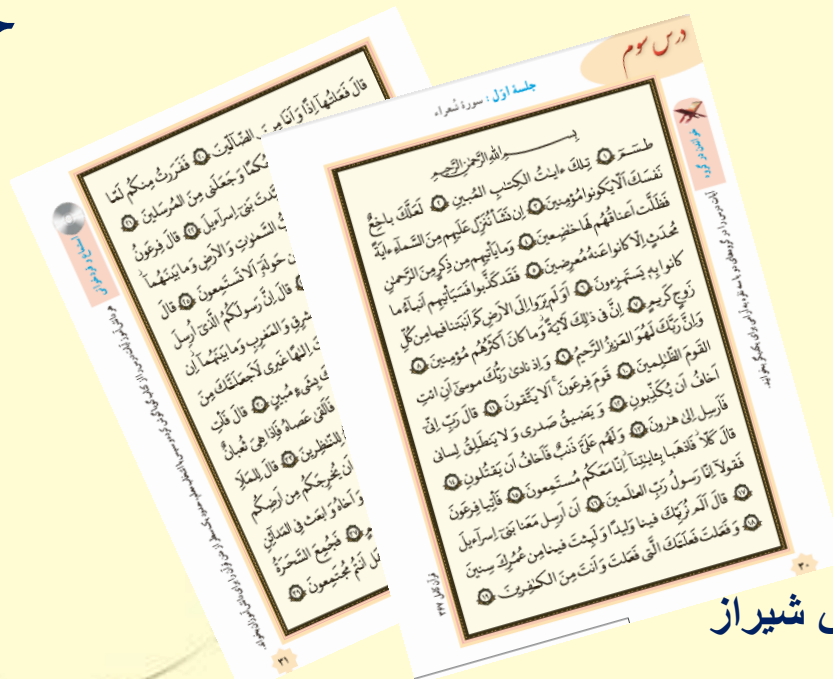 درس سوم
جلسهٔ اوّل : سورهٔ شُعراء
خواندن در گروه
بِسمِ اللهِ الرَّحمٰنِ الرَّحیمِ
طسٓمٓ ۱ تِلكَ ءایٰتُ الكِتٰبِ المُبینِ ۲ لَعَلَّكَ باخِعٌ
نَفسَكَ اَلّا یَكونوا مُؤمِنینَ ۳ اِن نَشَأ نُنَزِّل عَلَیهِم مِنَ السَّماءِ ءایَةً
فَظَلَّت اَعناقُهُم لَها خٰضِعینَ ۴ وَما یَأتیهِم مِن ذِكرٍ مِنَ الرَّحمٰنِ
مُحدَثٍ اِلّا كانوا عَنهُ مُعرِضینَ ۵ فَقَد كَذَّبوا فَسَیَأتیهِم اَنبٰٓؤُا ما
كانوا بِه یَستَهزِءونَ ۶ اَوَلَم یَرَوا اِلَی الاَرضِ كَم اَنبَتنا فیها مِن كُلِّ
زَوجٍ كَریمٍ ۷ اِنَّ فی ذٰلِكَ لَآیَةً وَما كانَ اَكثَرُهُم مُؤمِنینَ ۸
وَاِنَّ رَبَّكَ لَهُوَ العَزیزُ الرَّحیمُ ۹ وَاِذ نادیٰ رَبُّكَ موسیٰٓ اَنِ ائتِ
القَومَ الظّالِمینَ ۱۰ قَومَ فِرعَونَ اَلا یَتَّقونَ ۱۱ قالَ رَبِّ اِنّی
اَخافُ اَن یُكَذِّبونِ ۱۲ وَ یَضیقُ صَدری وَلا یَنطَلِقُ لِسانی
فَاَرسِل اِلیٰ هٰرونَ ۱۳ وَلَهُم عَلَیَّ ذَنبٌ فَاَخافُ اَن یَقتُلونِ ۱۴
قالَ كَلّا فَاذهَبا بِـٔایٰتِنا اِنّا مَعَكُم مُستَمِعونَ ۱۵ فَأتِیا فِرعَونَ
فَقولآ اِنّا رَسولُ رَبِّ العٰلَمینَ ۱۶ اَن اَرسِل مَعَنا بَنیٓ اِسرآءیلَ
۱۷ قالَ اَلَم نُرَبِّكَ فینا وَلیدًا وَلَبِثتَ فینا مِن عُمُرِكَ سِنینَ
۱۸ وَ فَعَلتَ فَعلَتَكَ الَّتی فَعَلتَ وَاَنتَ مِنَ الكٰفِرینَ ۱۹
۳۰
قالَ فَعَلتُهآ اِذًا وَ اَنَا مِنَ الضّآلّینَ ۲۰ فَفَرَرتُ مِنكُم لَمّا
حُكمًا وَ جَعَلَنی مِنَ المُرسَلینَ ۲۱
بَنیٓ اِسرآءیلَ ۲۲ قالَ فِرعَونُ
السَّمٰوٰتِ وَ الاَرضِ وَ ما بَینَهُما
حَولَهٓ اَلا تَستَمِعونَ ۲۵ قالَ
قالَ اِنَّ رَسولَكُمُ الَّذیٓ اُرسِلَ
وَ المَغرِبِ وَ ما بَینَهُمآ اِن
اِلٰهًا غَیری لَاَجعَلَنَّكَ مِنَ
بِشَیءٍ مُبینٍ ۳۰ قالَ فَأتِ
فَاَلقیٰ عَصاهُ فَاِذا هِیَ ثُعبانٌ
لِلنّٰظِرینَ ۳۳ قالَ لِلمَلَاِ
اَن یُخرِجَكُم مِن اَرضِكُم
وَ اَخاهُ وَ ابعَث فِی المَدآئِنِ
۳۷ فَجُمِعَ السَّحَرَةُ
هَل اَنتُم مُجتَمِعونَ ۳۹
۳۱
شیراز